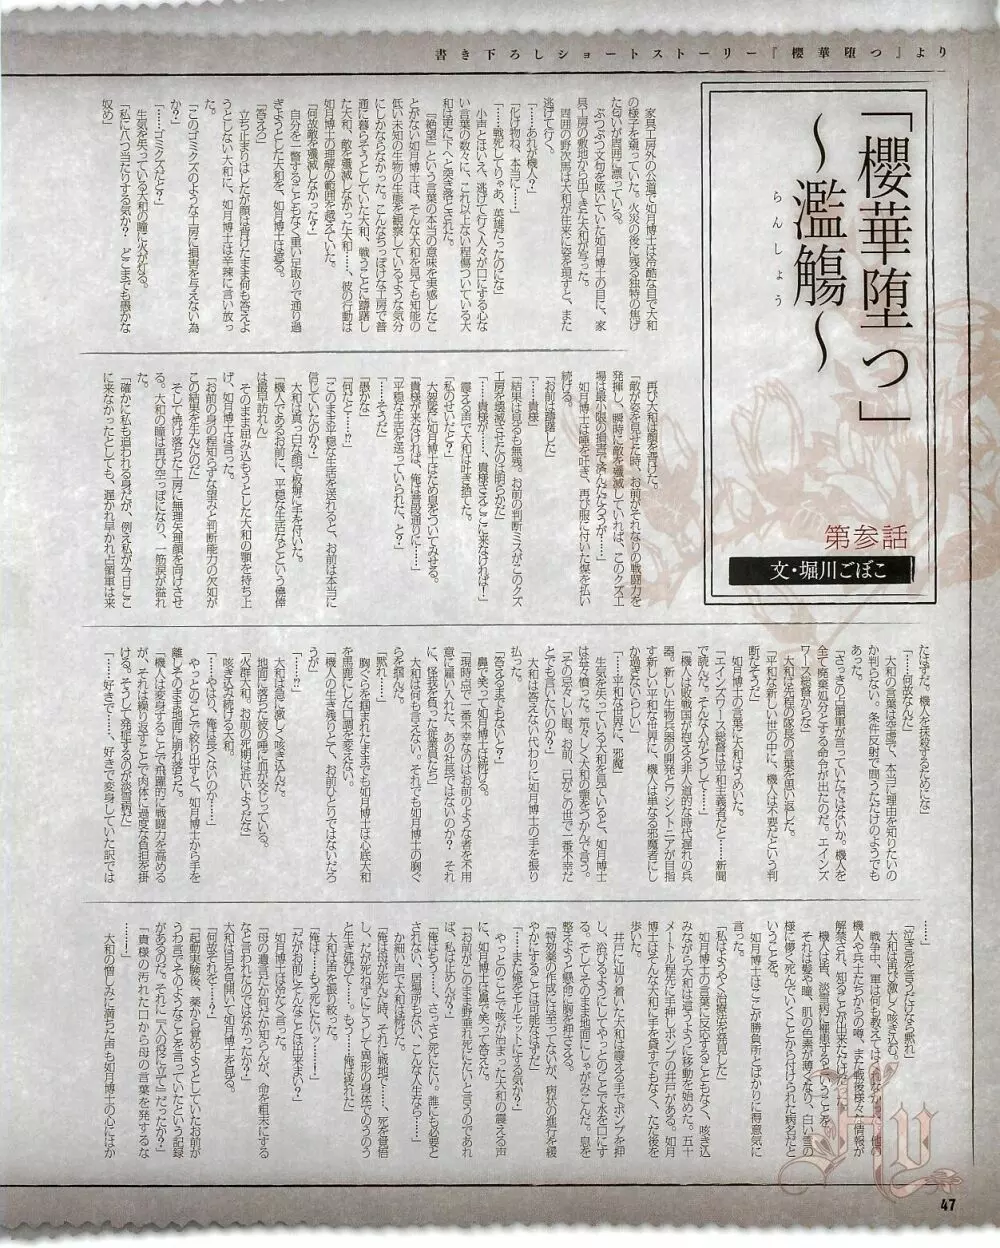 書き下ろしショートストーリー『櫻華堕つ』より
「櫻華堕つ」
～濫觴～
らんしょう
第参話
文・堀川ごぼこ
家具工房外の公道で如月博士は冷酷な目で大和
の様子を窺っていた。火災の後に残る独特の焦げ
た匂いが周囲に漂っている。
ぶつぶつ文句を呟いていた如月博士の目に、家
具工房の敷地から出てきた大和が写った。
周囲の野次馬は大和が往来に姿を現すと、また
逃げて行く。
「……あれが機人？」
「化け物ね、本当に……」
「……戦死してりゃあ、英雄だったのにな」
小声とはいえ、逃げて行く人々が口にする心な
い言葉の数々に、これ以上ない程傷ついている大
和は更に下へと突き落とされた。
『絶望』という言葉の本当の意味を実感したこ
とがない如月博士は、そんな大和を見ても知能の
低い未知の生物の生態を観察しているような気分
にしかならなかった。こんなちっぽけな工房で普
通に暮らそうとしていた大和、戦うことに躊躇し
た大和、敵を殲滅しなかった大和……、彼の行動は
如月博士の理解の範囲を越えていた。
「何故敵を殲滅しなかった？」
自分を一瞥することもなく重い足取りで通り過
ぎようとした大和を、如月博士は遮る。
「答えろ」
立ち止まりはしたが顔は背けたまま何も答えよ
うとしない大和に、如月博士は辛辣に言い放っ
た。
「このゴミクズのような工房に損害を与えない為
か？」
「……ゴミクズだと？」
生気を失っている大和の瞳に火が灯る。
「私に八つ当たりする気か？　どこまでも愚かな
奴め」
再び大和は顔を背けた。
「敵が姿を見せた時、お前がそれなりの戦闘力を
発揮し、瞬時に敵を殲滅していれば、このクズ工
場は最小限の損害で済んだだろうが……」
如月博士は唾を吐き、再び服に付いた煤を払い
続ける。
「お前は躊躇した」
「……貴様」
「結果は見るも無残。お前の判断ミスがこのクズ
工房を壊滅させたのは明らかだ」
「……貴様が……、貴様さえここに来なければ！」
震える声で大和は吐き捨てた。
「私のせいだと？」
大袈裟に如月博士はため息をついてみせる。
「貴様が来なければ、俺は普段通りに……」
「平穏な生活を送っていられた、と？」
「……そうだ」
「愚かな」
「何だと……!?」
「このまま平穏な生活を送れると、お前は本当に
信じていたのか？」
大和は真っ白な顔で板塀に手を付いた。
「機人であるお前に、平穏な生活などという僥倖
は最早訪れん」
そのまま屈み込もうとした大和の顎を持ち上
げ、如月博士は言った。
「お前の身の程知らずな望みと判断能力の欠如が
この結果を生んだのだ」
そして焼け落ちた工房に無理矢理顔を向けさせ
る。大和の瞳は再び空っぽになり、一筋涙が溢れ
た。
「確かに私も追われる身だが、例え私が今日ここ
に来なかったとしても、遅かれ早かれ占領軍は来
たはずだ。機人を抹殺するためにな」
「……何故なんだ」
大和の言葉は空虚で、本当に理由を知りたいの
か判らない。条件反射で問うただけのようでも
あった。
「さっきの占領軍が言っていたではないか。機人を
全て廃棄処分とする命令が出たのだ。エインズ
ワース総督からな」
大和は先程の隊長の言葉を思い返した。
「平和な新しい世の中に、機人は不要だという判
断だそうだ」
如月博士の言葉に大和はうめいた。
「エインズワース総督は平和主義者だと……新聞
で読んだ。そんな人がどうして……」
「機人は敗戦国が抱える非人道的な時代遅れの兵
器。新しい生物兵器の開発とワシントニアが目指
す新しい平和な世界に、機人は単なる邪魔者にし
か過ぎないらしい」
「……平和な世界に、邪魔」
生気を失っている大和を見ていると、如月博士
は益々憤った。荒々しく大和の顎をつかんで言う。
「その忌々しい眼。お前、己がこの世で一番不幸だ
とでも言いたいのか？」
大和は答えない代わりに如月博士の手を振り
払った。
「答えるまでもないと？」
鼻で笑って如月博士は続ける。
「現時点で一番不幸なのはお前のような者を不用
意に雇い入れた、あの社長ではないのか？　それ
に、怪我を負った従業員たち」
大和は何も言えない。それでも如月博士の胸ぐ
らを掴んだ。
「黙れ……」
胸ぐらを掴まれたままでも如月博士は心底大和
を馬鹿にした口調を変えない。
「機人の生き残りとて、お前ひとりではないだろ
うが」
「……っ？」
大和は急に激しく咳き込んだ。
地面に落ちた彼の唾に血が交じっている。
「火群大和。お前の死期は近いようだな」
咳き込み続ける大和。
「……やはり、俺は長くないのか……」
やっとのことで絞り出すと、如月博士から手を
離しそのまま地面に崩れ落ちた。
「機人は変身することで飛躍的に戦闘力を高める
が、それは繰り返すことで肉体に過度な負担を掛
ける。そうして発症するのが淡雪病だ」
「……好きで……、好きで変身していた訳では
……」
「泣き言を言うだけなら黙れ」
大和は再び激しく咳き込む。
戦争中、軍は何も教えてはくれなかった。他の
機人や兵士たちからの噂、また戦後様々な情報が
解禁され、知ることが出来ただけだ。
機人は皆、淡雪病に罹患するということを。
それは髪や瞳、肌の色素が薄くなり、白い雪の
様に儚く死んでいくことから付けられた病名だと
いうことを。
如月博士はここが勝負所とばかりに得意気に
言った。
「私はようやく治療法を発見した」
如月博士の言葉に反応することもなく、咳き込
みながら大和は這うように移動を始めた。五十
メートル程先に手押しポンプの井戸がある。如月
博士はそんな大和に手を貸すでもなく、ただ後を
歩いた。
井戸に辿り着いた大和は震える手でポンプを押
し、浴びるようにしてやっとのことで水を口にす
る。そしてそのまま地面にしゃがみこんだ。息を
整えようと懸命に胸を押さえる。
「特効薬の作成には至ってないが、病状の進行を緩
やかにすることは可能なはずだ」
「……また俺をモルモットにする気か？」
やっとのことで咳が治まった大和の震える声
に、如月博士は鼻で笑って答えた。
「お前がこのまま野垂れ死にたいと言うのであれ
ば、私は止めんが？」
「俺はもう……、さっさと死にたい。誰にも必要と
されない、居場所もない、こんな人生なら……」
か細い声で大和は続けた。
「俺は母が死んだ時、それに戦地で……、死を覚悟
し、だが死ねずにこうして異形の身体でのうのう
と生き延びて……。もう……俺は疲れた」
大和は声を振り絞った。
「俺は……もう死にたいッ……！」
「だがお前にそんなことは出来まい？」
如月博士は冷たく言った。
「母の遺言だか何だか知らんが、命を粗末にする
なと言われたのではなかったか？」
大和は目を見開いて如月博士を見る。
「何故それを……？」
「起動実験後、薬から覚めようとしていたお前が
うわ言でそのようなことを言っていたという記録
があるのだ。それに『人の役に立て』だったか？」
「貴様の汚れた口から母の言葉を発するな」
大和の憎しみに満ちた声も如月博士の心にはか
47